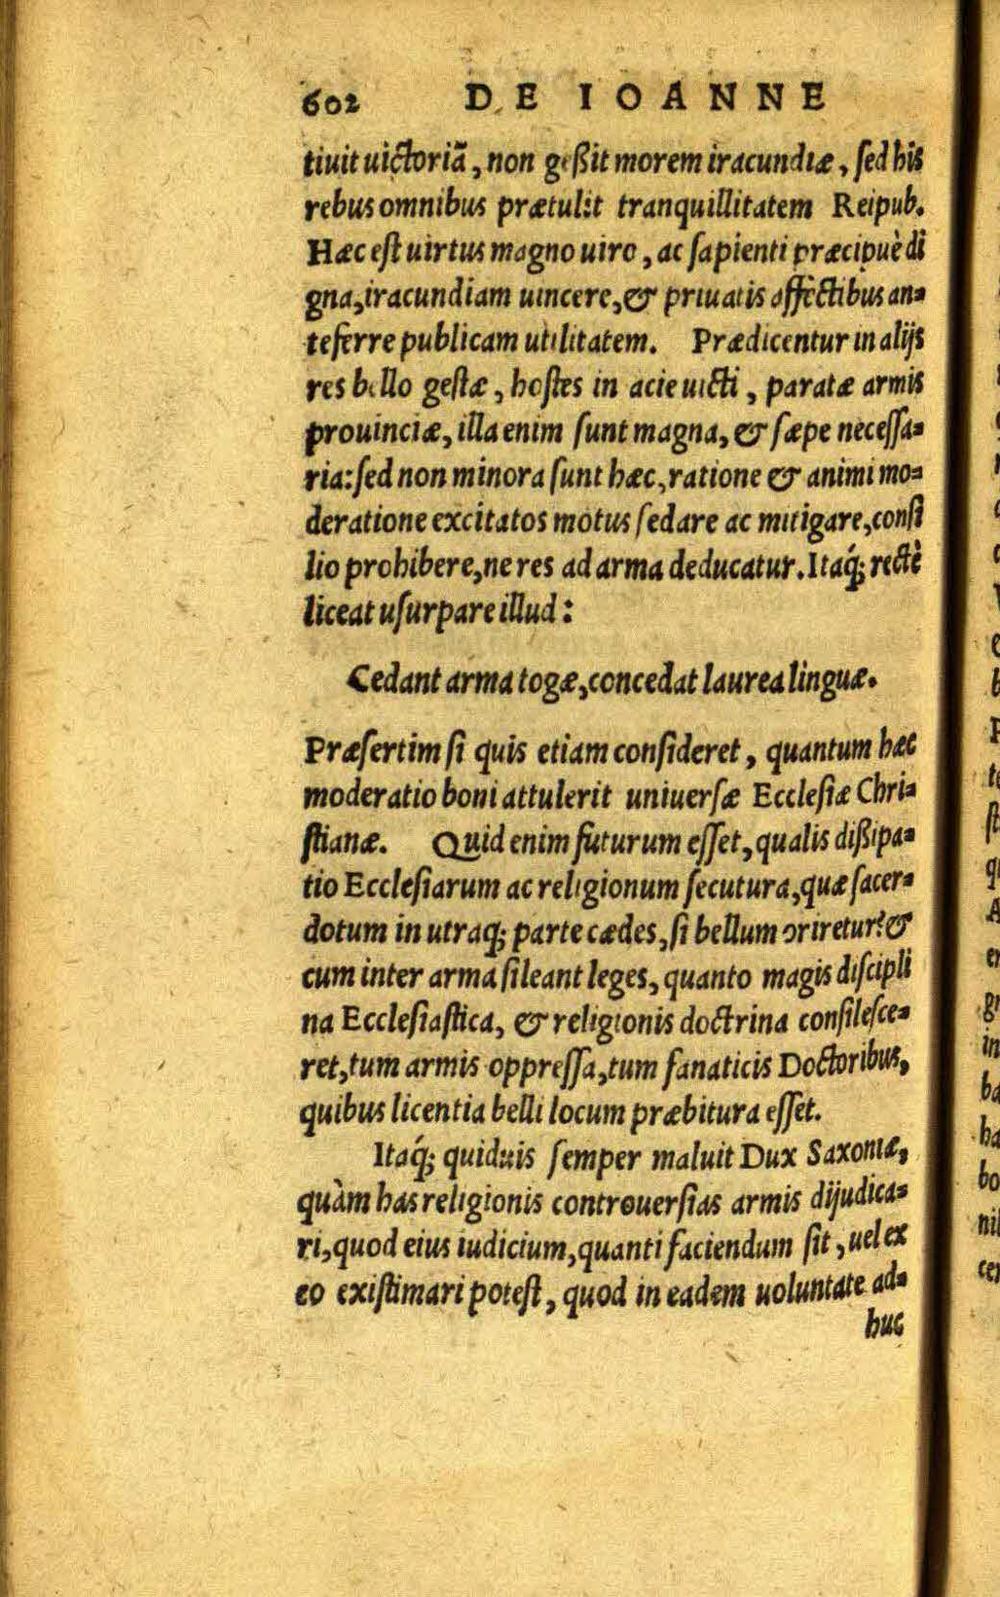 602 DE IOANNE
tiuit uictoriã, non geßit morem iracundiæ, ſed his
rebus omnibus prætulit tranquillitatem Reipub.
Hæc eſt uirtus magno uiro, ac ſapienti præcipuè di
gna, iracundiam uincere, & priuatis affectibus an=
teferre publicam utilitatem. Prædicentur in alijs
res bello geſtæ, hoſtes in acie uicti, paratæ armis
prouinciæ, illa enim ſunt magna, & ſæpe neceſſa=
ria: ſed non minora ſunt hæc, ratione & animi mo=
deratione excitatos motus ſedare ac mitigare, conſi
lio prohibere, ne res ad arma deducatur. Itaq́; rectè
liceat uſurpare illud:
Cedant arma togæ, concedat laurea linguæ.
Præſertim ſi quis etiam conſideret, quantum hæc
moderatio boni attulerit uniuerſæ Eccleſiæ Chri=
ſtianæ. Quid enim futurum eſſet, qualis dißipa=
tio Eccleſiarum ac religionum ſecutura, quæ ſacer=
dotum in utraq; parte cædes, ſi bellum oriretur? &
cum inter arma ſileant leges, quanto magis diſcipli
na Eccleſiaſtica, & religionis doctrina conſileſce=
ret, tum armis oppreſſa, tum fanaticis Doctoribus,
quibus licentia belli locum præbitura eſſet.
Itaq́; quiduis ſemper maluit Dux Saxoniæ,
quàm has religionis controuerſias armis dijudica=
ri, quod eius iudicium, quanti faciendum ſit, uel ex
eo exiſtimari poteſt, quod in eadem uoluntate ad=
huc